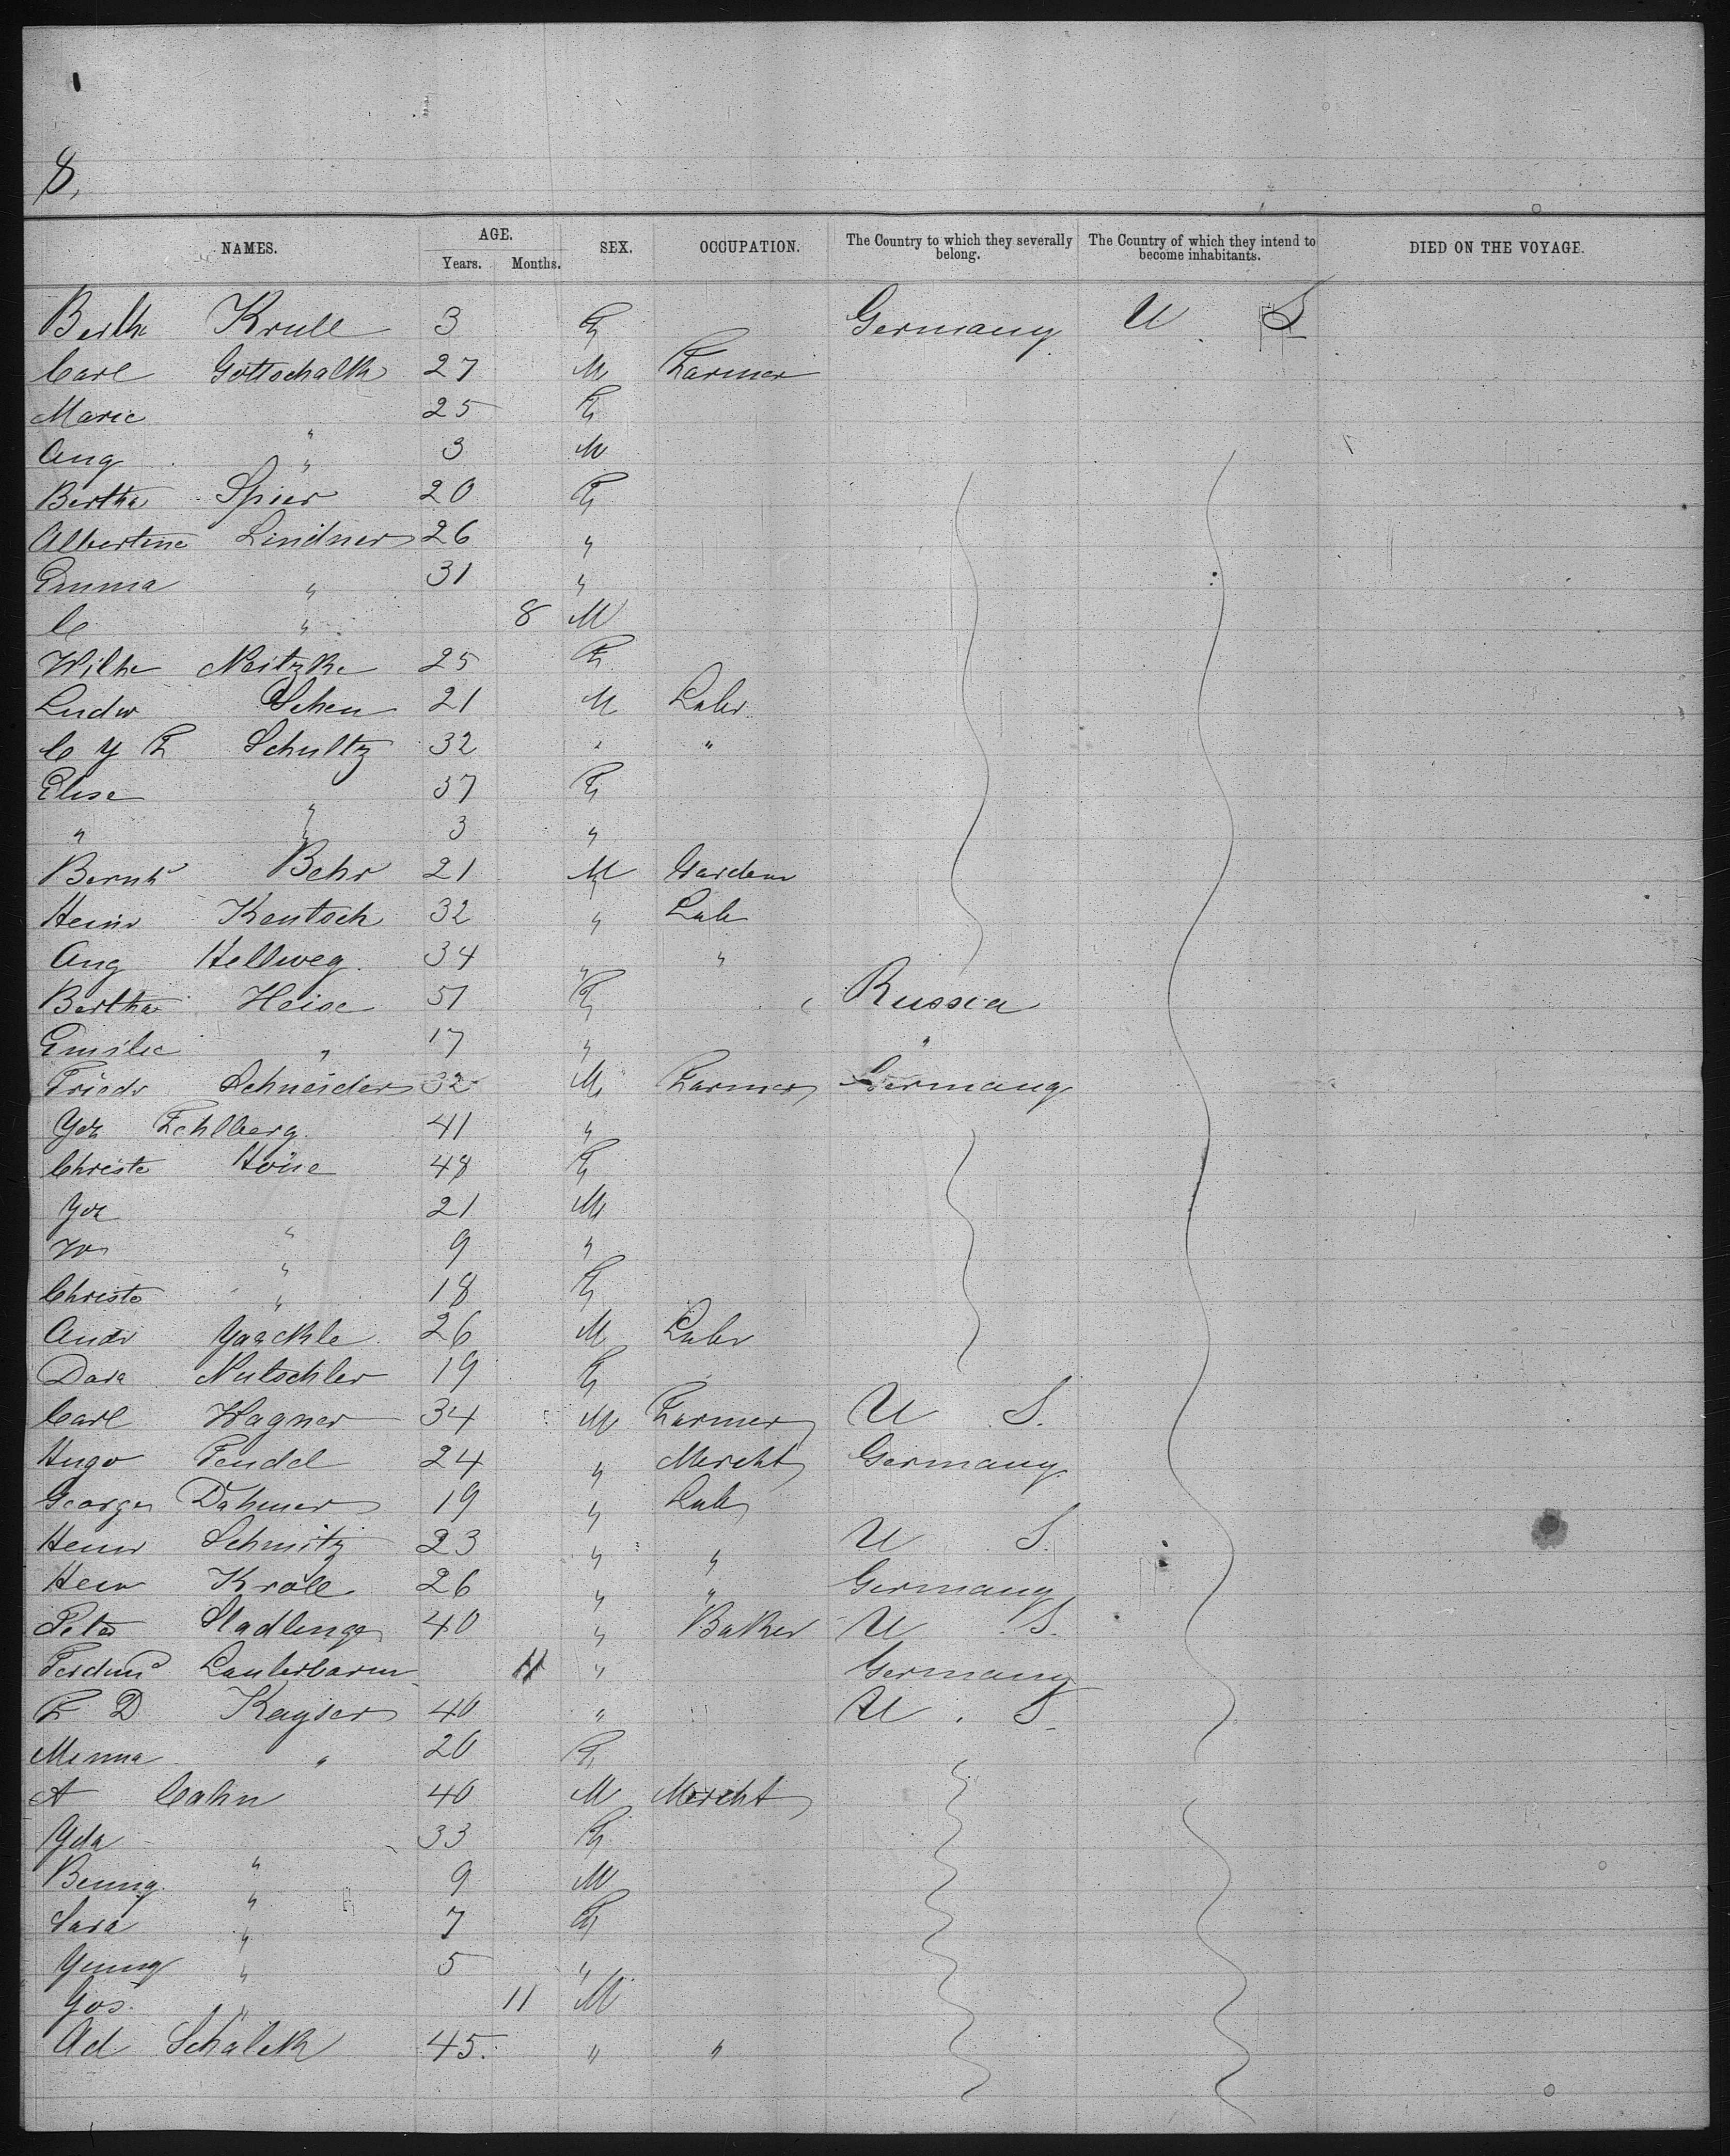 8.
NAMES. AGE. Years. Months. SEX. OCCUPATION. The Country to which they severally belong. The Country of which they intend to become inhabitants. DIED ON THE VOYAGE.
Berth Krull 3 F Germany U S
Carl Gottschalk 27 M Farmer
Marie " 25 F
Aug " 3 M
Bertha Spier 20 F
Albertine Lindner 26 "
Emma " 31 "
C " 8 M
Wilhe Neitzke 25 F
Ludw 21 M Labr
C Y F Schultz 32 " "
Elise " 37 F
" " 3 "
Bernhd Behr 21 M Gardenr
Heinr Kentsch 32 " Lab
Aug Hellweg 34 " "
Bertha Heise 51 F Russia
Emilie " 17 " "
Friedr Schneider 32 M Farmer Germany
Fehlberg 41 "
Christe 48 F
" 21 M
W " 9 "
Christe " 18 F
Andr Yaackle 26 M Labr
Dora Nutschler 19 F
Carl Wagner 34 M Farmer U S.
Hugo Fendel 24 " Mercht Germany
George Dahmer 19 " Lab
Heinr Schmitz 23 " " U S.
Heinr Kroll 26 " " Germany
Peter Stadlinger 40 " Baker U S.
Ferdind 11 " Germany
F D Kayser 40 " U. S.
Minna " 20 F
A Cahn 40 M Mercht
Yda " 33 F
Benny " 9 M
Sara " 7 F
Yenny " 5 "
Yos. " 11 M
Ad Schalck 45. " "